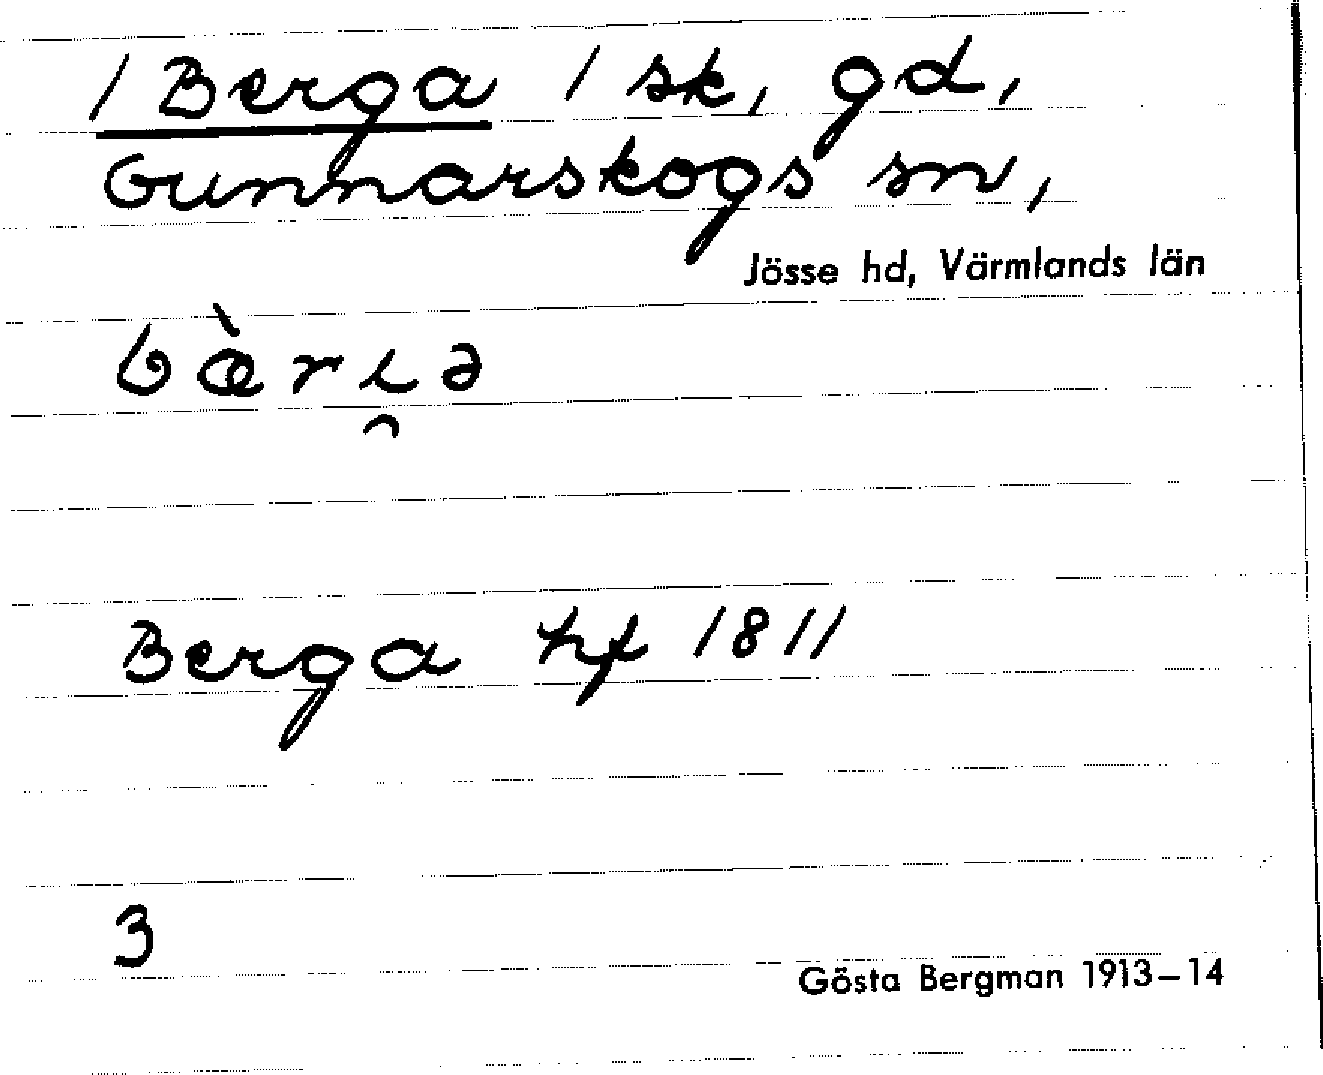 / Berga / sk, gd,
Gunnarskogs sn,
Jösse hd, Värmlands län
bæ̀ri̯ə
Berga hf 1811
3
Gösta Bergman 1913–14